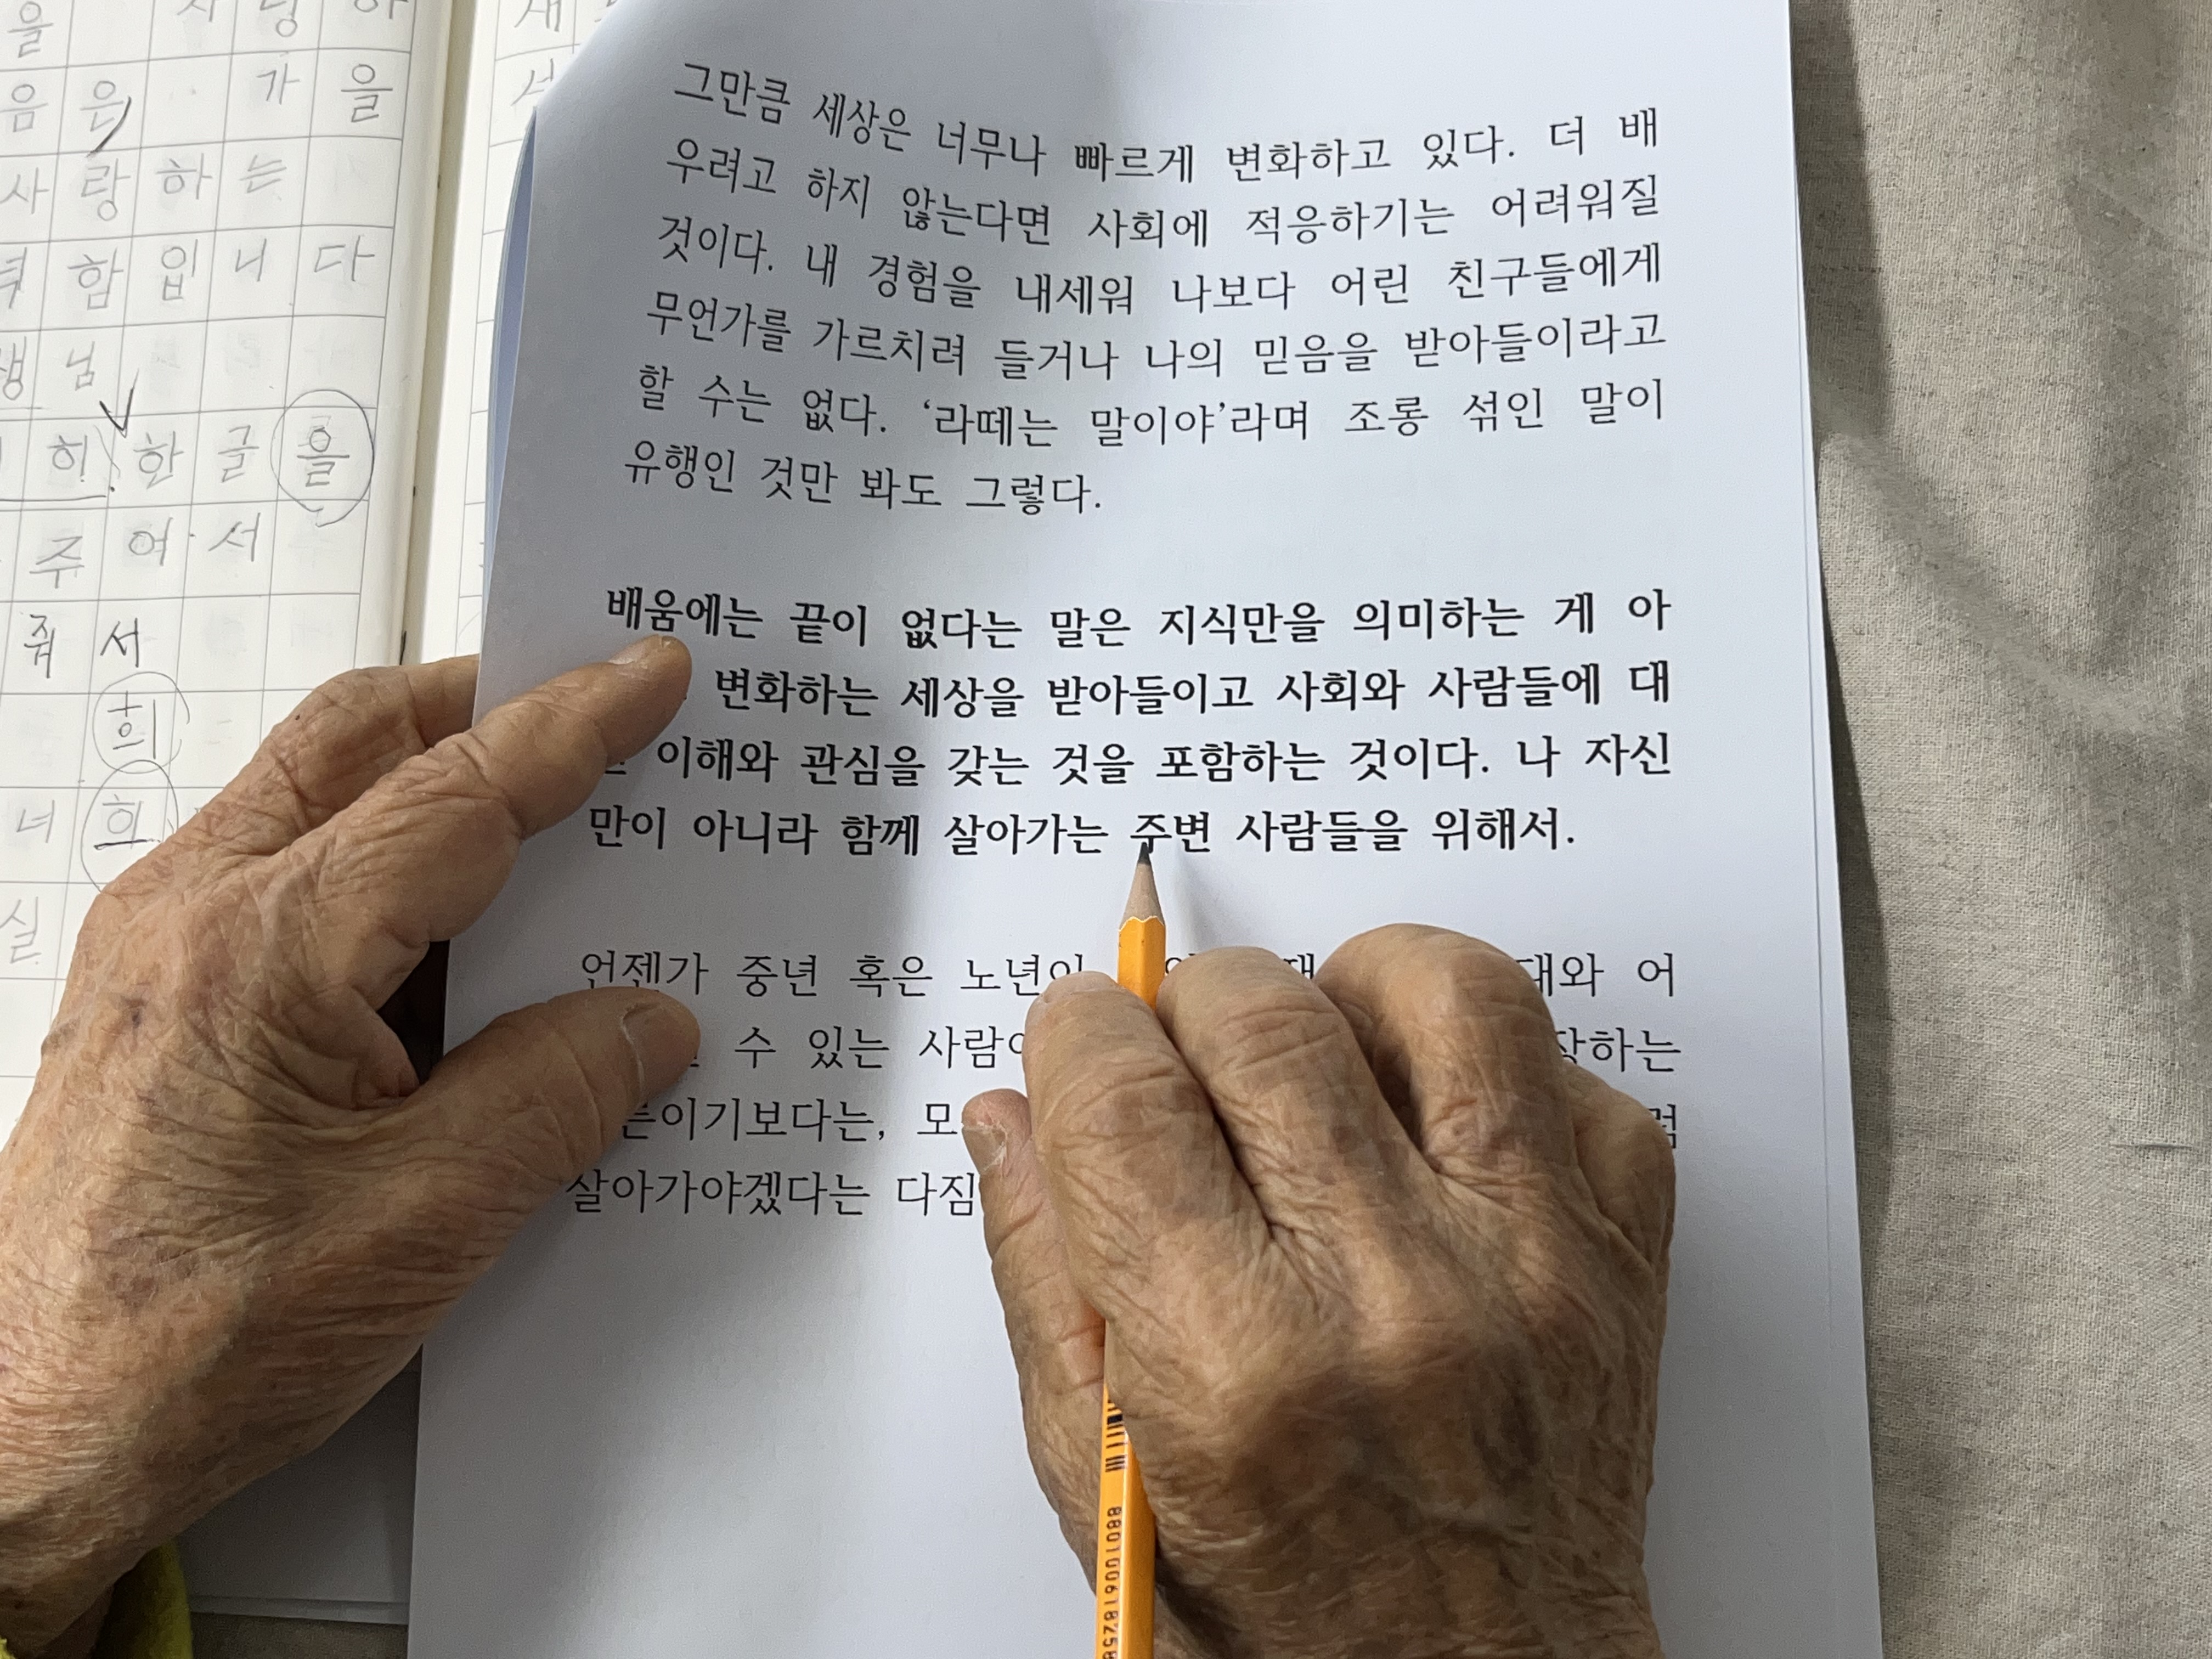 을
음 은 가 을
사 랑 하 는
함 입 니 다
님
히 한 글 을
주 어 서
줘 서
희
너 희
실
그만큼 세상은 너무나 빠르게 변화하고 있다. 더 배
우려고 하지 않는다면 사회에 적응하기는 어려워질
것이다. 내 경험을 내세워 나보다 어린 친구들에게
무언가를 가르치려 들거나 나의 믿음을 받아들이라고
할 수는 없다. ‘라떼는 말이야’라며 조롱 섞인 말이
유행인 것만 봐도 그렇다.
배움에는 끝이 없다는 말은 지식만을 의미하는 게 아
변화하는 세상을 받아들이고 사회와 사람들에 대
이해와 관심을 갖는 것을 포함하는 것이다. 나 자신
만이 아니라 함께 살아가는 주변 사람들을 위해서.
언젠가 중년 혹은 노년이 대와 어
수 있는 사람이 장하는
른이기보다는, 모
살아가야겠다는 다짐
880100618258